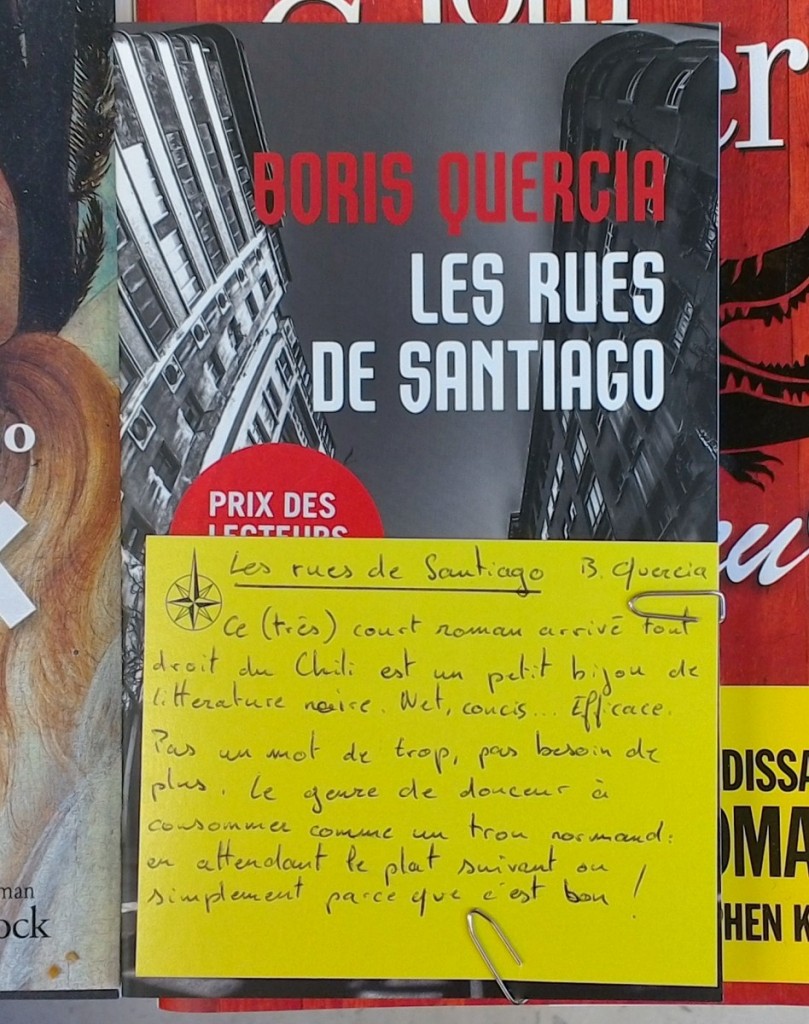 er
BORIS QUERCIA
LES RUES
DE SANTIAGO
PRIX DES
LECTEURS
Les rues de Santiago B. Quercia
Ce (très) court roman arrivé tout
droit du Chili est un petit bijou de
littérature noire. Net, concis... Efficace.
Pas un mot de trop, pas besoin de
plus. Le genre de douceur à
consommer comme un trou normand :
en attendant le plat suivant ou
simplement parce que c'est bon !
o
man
ock
DISSA
OMA
PHEN K